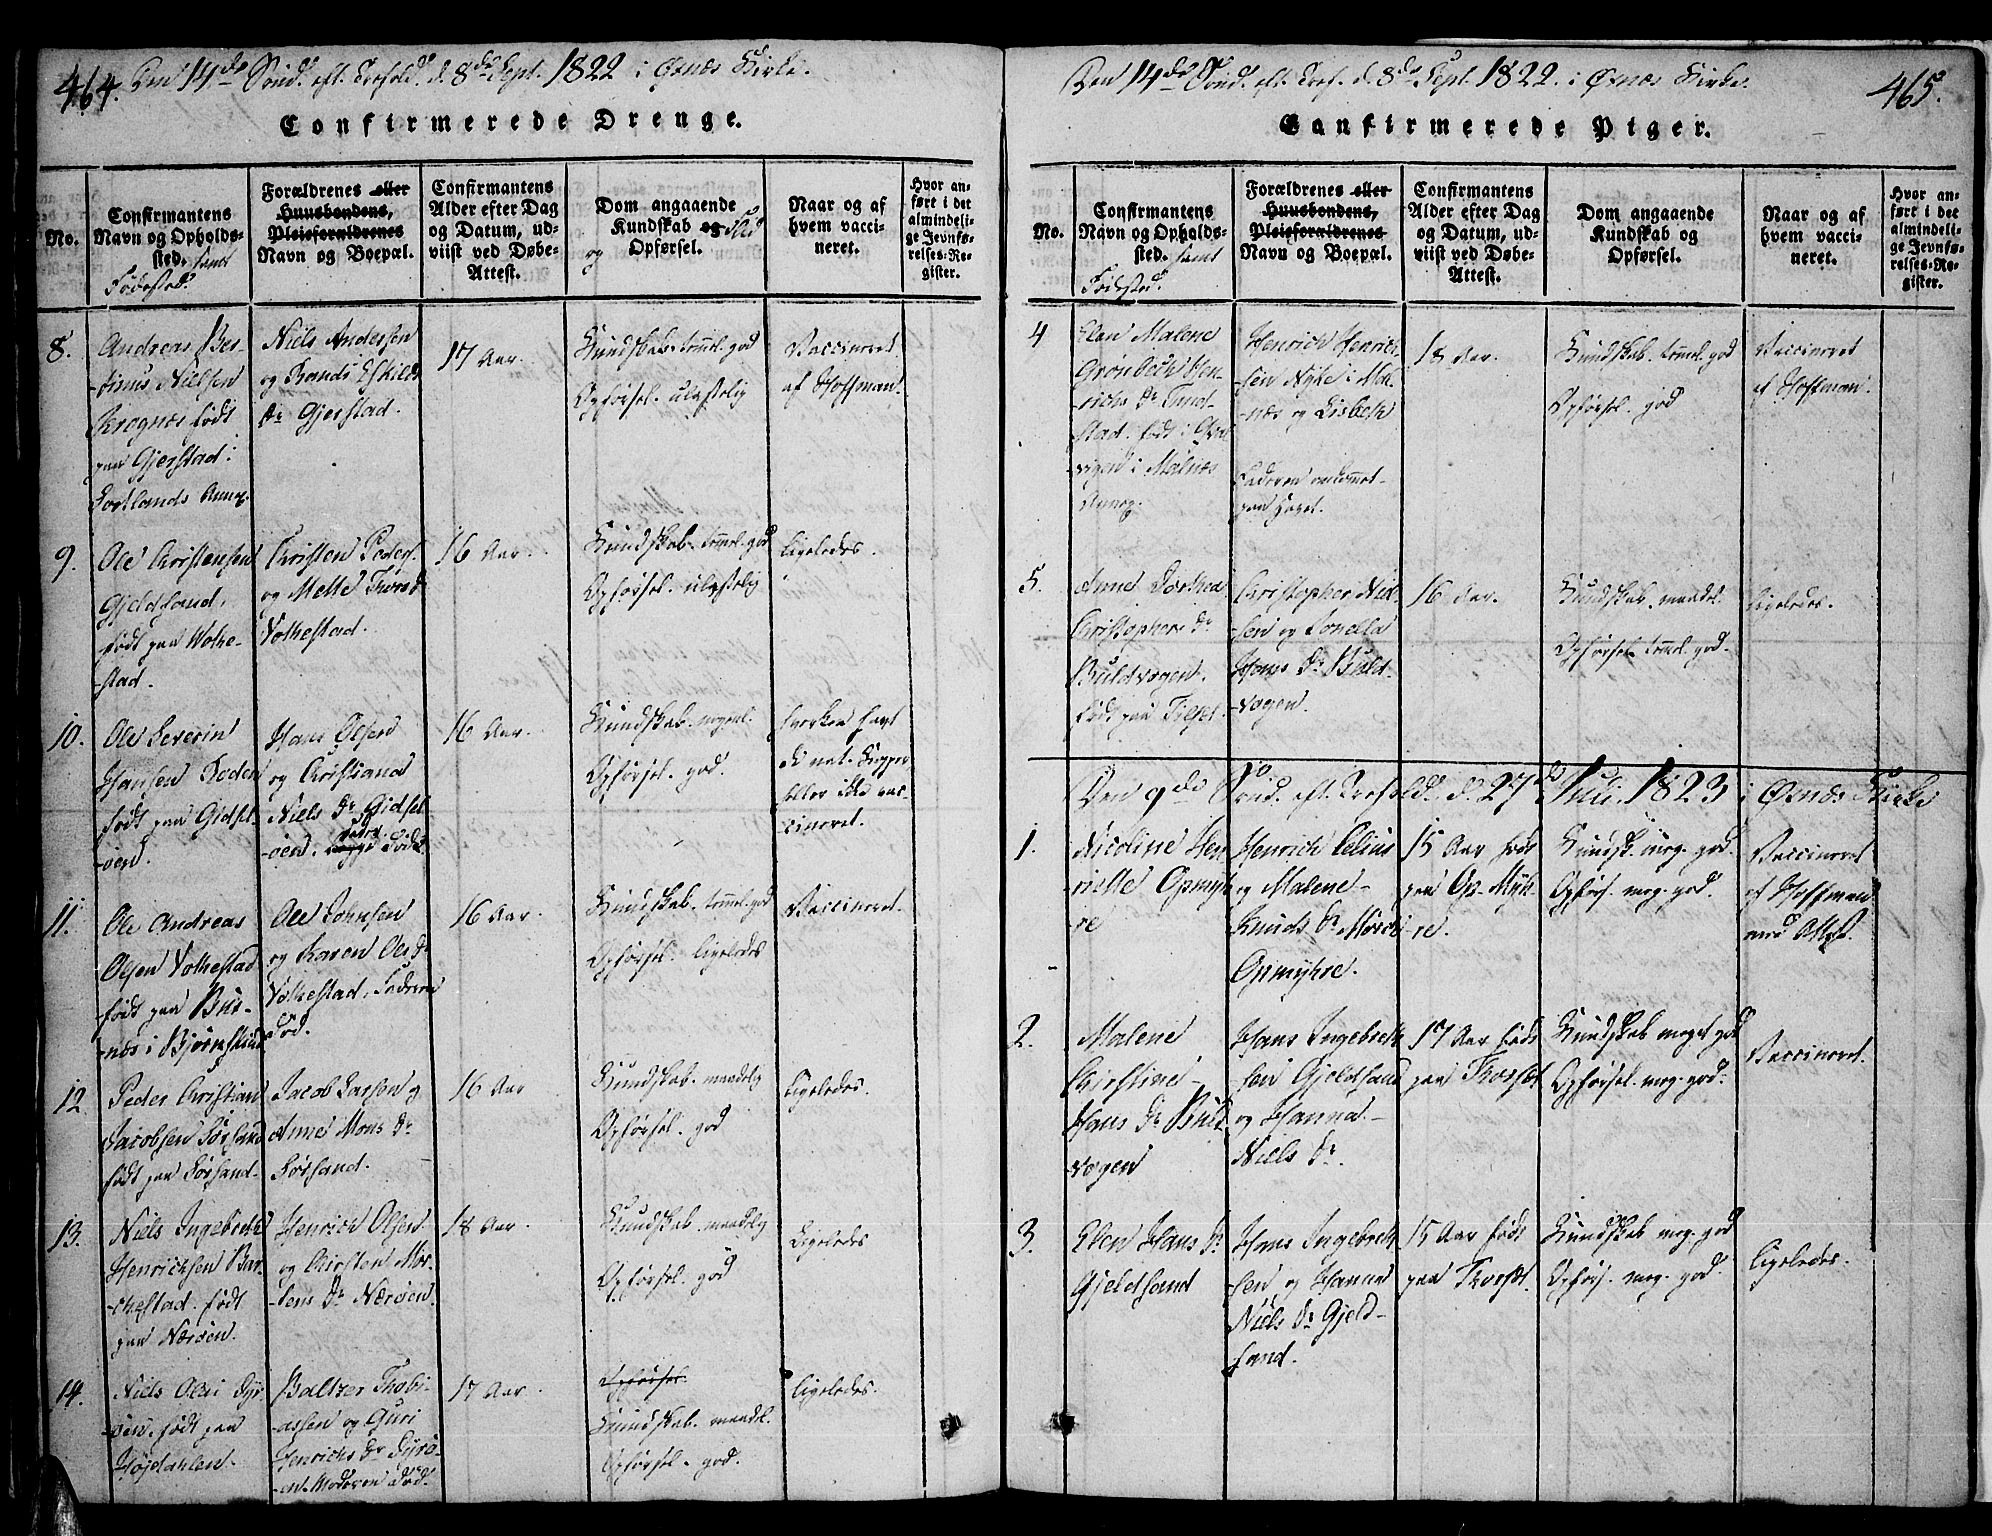 464. Den 14de Sønd. eft. Trefold. d. 8de Sept. 1822 i Øxnæs Kirke.
Confirmerede Drenge.
No.
Confirmantens
Navn og Opholds-
sted. samt
Fødested.
Forældrenes eller
Huusbondens,
Pleieforældrenes
Navn og Boepæl.
Confirmantens
Alder efter Dag
og Datum, ud-
viist ved Døbe-
Attest.
Dom angaaende
Kundskab og Flid
og Opførsel.
Naar og af
hvem vacci-
neret.
Hvor an-
ført i det
almindeli-
ge Jevnfø-
relses-Re-
gister.
8.
Andreas
-tinus Nielsen
Kragnæs født
paa Gjerstad i
Sortlands Annex.
Niels Andersen
og Randi Eskilds
Dr Gjerstad.
17 Aar.
Kundskab. temmel. god
Opførsel. ulastelig
Vaccineret
af Hoffman.
9.
Ole Christensen
Gjeldsand,
født paa Wolke-
stad.
Christen Peders.
og Mette Thoresd
Volkestad.
16 Aar.
Kundskab. temmel. god
Opførsel. ulastelig
Ligeledes.
10.
Ole Severin
Hansen
født paa Gidsel-
-øen.
Hans Olsen
og Christiana
Niels Dr Gidsel
-øen. begge døde.
16 Aar.
Kundskab. maadel.
Opførsel. god.
hverken havt
de nat. Kopper
heller ikke vac-
cineret.
11.
Ole Andreas
Olsen Volkestad
født paa Bus-
-næs i Bjørnskind
Ole Johnsen
og Karen Ols Dr
Volkestad, Faderen
død.
16 Aar.
Kundskab. temmel. god
Opførsel. ligeledes
Vaccineret.
12.
Peder Christian
Jacobsen Sørsand
født paa Sørsand.
Jacob Larsen og
Anne Mons Dr
Sørsand.
16 Aar
Kundskab. maadelig
Opførsel. god
Ligeledes.
13.
Niels Ingebreth
Henrichsen Bar-
-chestad. født
paa Nærøen.
Henrich Olsen
og Kirsten Mor-
-tens Dr Nærøen.
18 Aar.
Kundskab. maadelig
Opførsel. god
Ligeledes
14.
Niels Olai Dyr
øen. født paa
Højdahlen.
Baltzer Thobi-
-assen og Guri
Henrichs Dr Dyrø-
-en. Moderen død.
17 Aar.
Opførsel.
Kundskab. maadel.
Opførsel. god.
Ligeledes.
Den 14de Sønd. eft. Tref. d. 8de Sept. 1822. i Øxnæs Kirke. 465.
Confirmerede Piger.
No.
Confirmantens
Navn og Opholds-
sted. samt
Fødested.
Forældrenes eller
Huusbondens,
Pleieforældrenes
Navn og Boepæl.
Confirmantens
Alder efter Dag
og Datum, ud-
viist ved Døbe-
Attest.
Dom angaaende
Kundskab og
Opførsel.
Naar og af
hvem vacci-
neret.
Hvor an-
ført i det
almindeli-
ge Jevnfø-
relses-Re-
gister.
4
Elen Malene
Grønbech Hen-
-richs Dr Tund-
stad. født i
-vigen i Malnæs
Annex.
Henrich Henrich-
-sen Nyke i Mal-
-næs og Lisbeth
Faderen omkommet
paa Havet.
18 Aar.
Kundskab. temmel. god
Opførsel. god
Vaccineret
af Hoffman.
5.
Anne Dorthea
Christophers Dr
Buldvogen.
født paa Tilset.
Christopher Niel-
-sen og Pernella
Hans Dr Buld-
-vogen.
16 Aar.
Kundskab. maadel.
Opførsel. temmel. god.
Ligeledes.
Den 9de Sønd. eft. Trefold. d. 27de Juli. 1823 i Øxnæs Kirke
1.
Nicoline Hen
-riette Opmyh
re
Henrich Celius
og Malene
Knuds Dr
Opmyhre.
15 Aar født
paa Op-Myh-
-re.
Kundsk. meg. god.
Opførs. meg. god.
Vaccineret
af Hoffman
med Attest.
2.
Malene
Kirstine
Hans Dr Buld
vogen
Hans Ingebreth-
-sen Gjeldsand
og Hanna
Niels Dr.
17 Aar født
paa Thorset.
Kundskab meget god
Opførsel. meg. god.
Vaccineret.
3.
Elen Hans Dr
Gjeldsand
Hans Ingebreth-
-sen og Hanna
Niels Dr Gjeld-
sand.
15 Aar født
paa Thorset.
Kundskab meg. god
Opførs. meg. god.
Ligeledes.